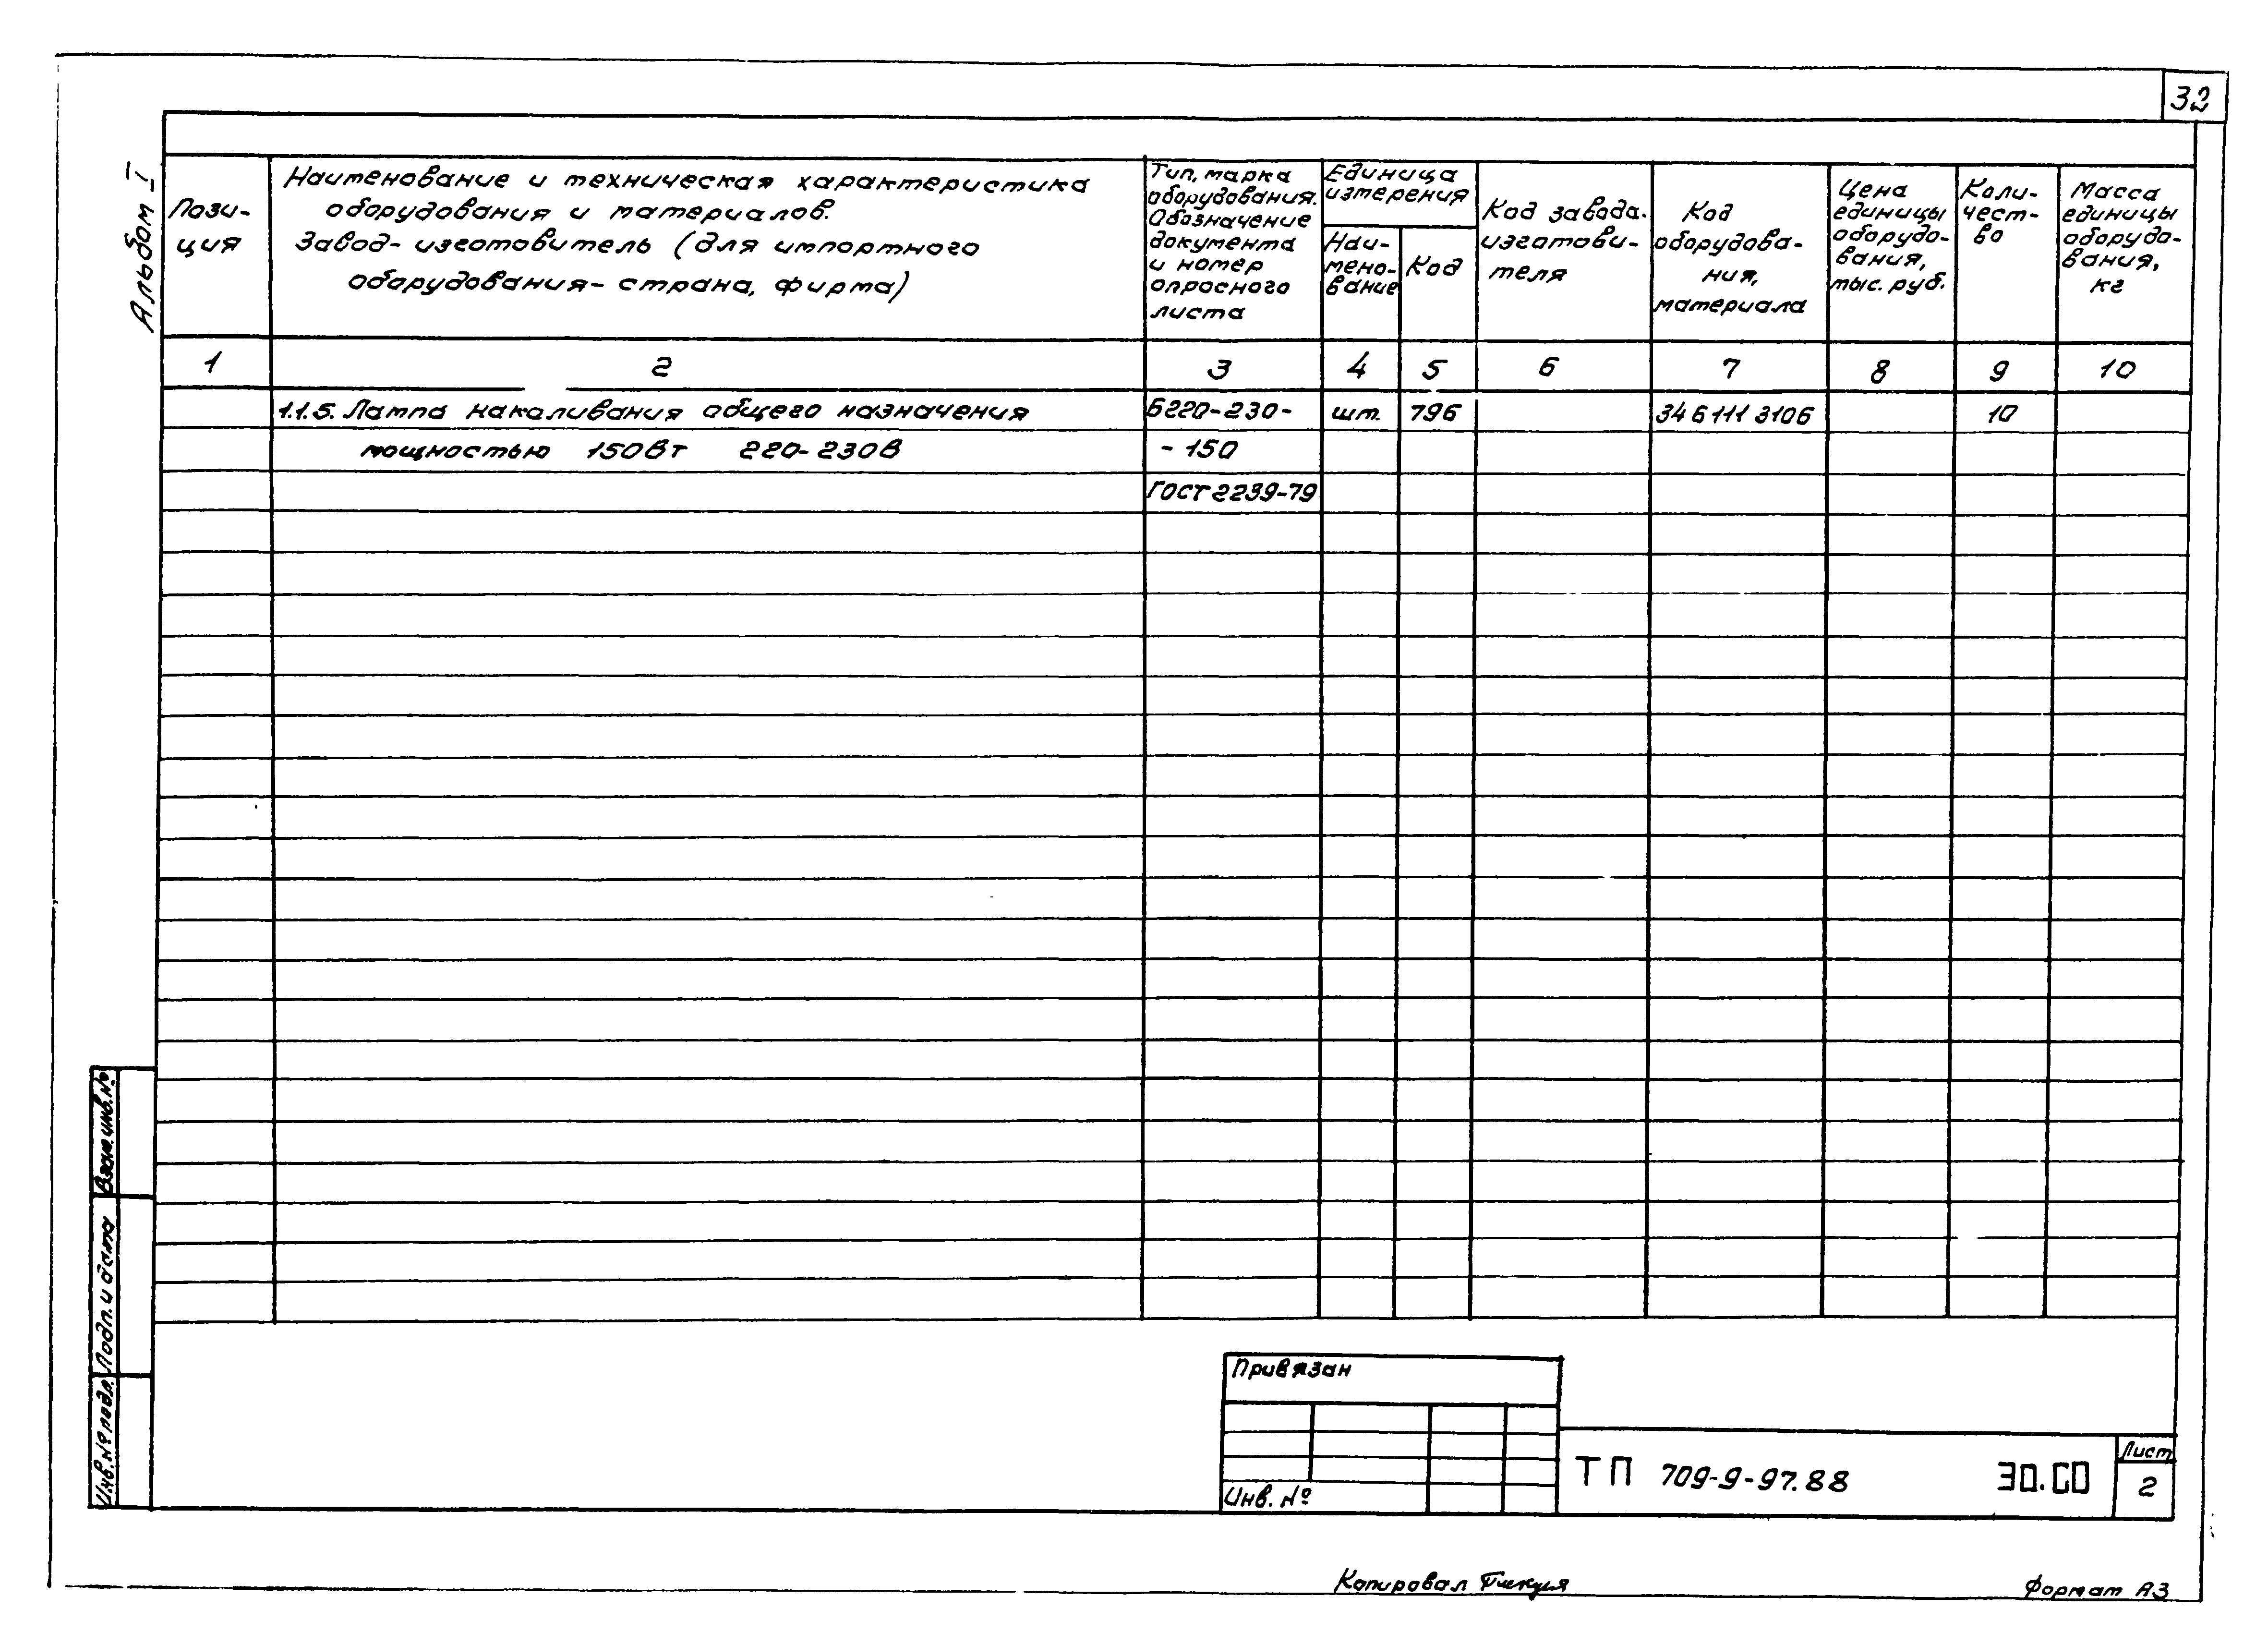 32
Альбом I
Пози-
ция
Наименование и техническая характеристика
оборудования и материалов.
Завод-изготовитель (для импортного
оборудования - страна, фирма)
Тип, марка
оборудования.
Обозначение
документа
и номер
опросного
листа
Единица
измерения
Наи-
мено-
вание
Код
Код завода-
изготови-
теля
Код
оборудова-
ния,
материала
Цена
единицы
оборудо-
вания,
тыс. руб.
Коли-
чест-
во
Масса
единицы
оборудо-
вания,
кг
1 2 3 4 5 6 7 8 9 10
1.1.5. Лампа накаливания общего назначения Б220-230- шт. 796 346 111 3106 10
мощностью 150Вт 220-230В -150
ГОСТ 2239-79
Взам. инв. №
Подп. и дата
Инв. № подл.
Привязан
Инв. №
ТП 709-9-97.88 ЭО.СО
Лист
2
Копировал
Формат А3